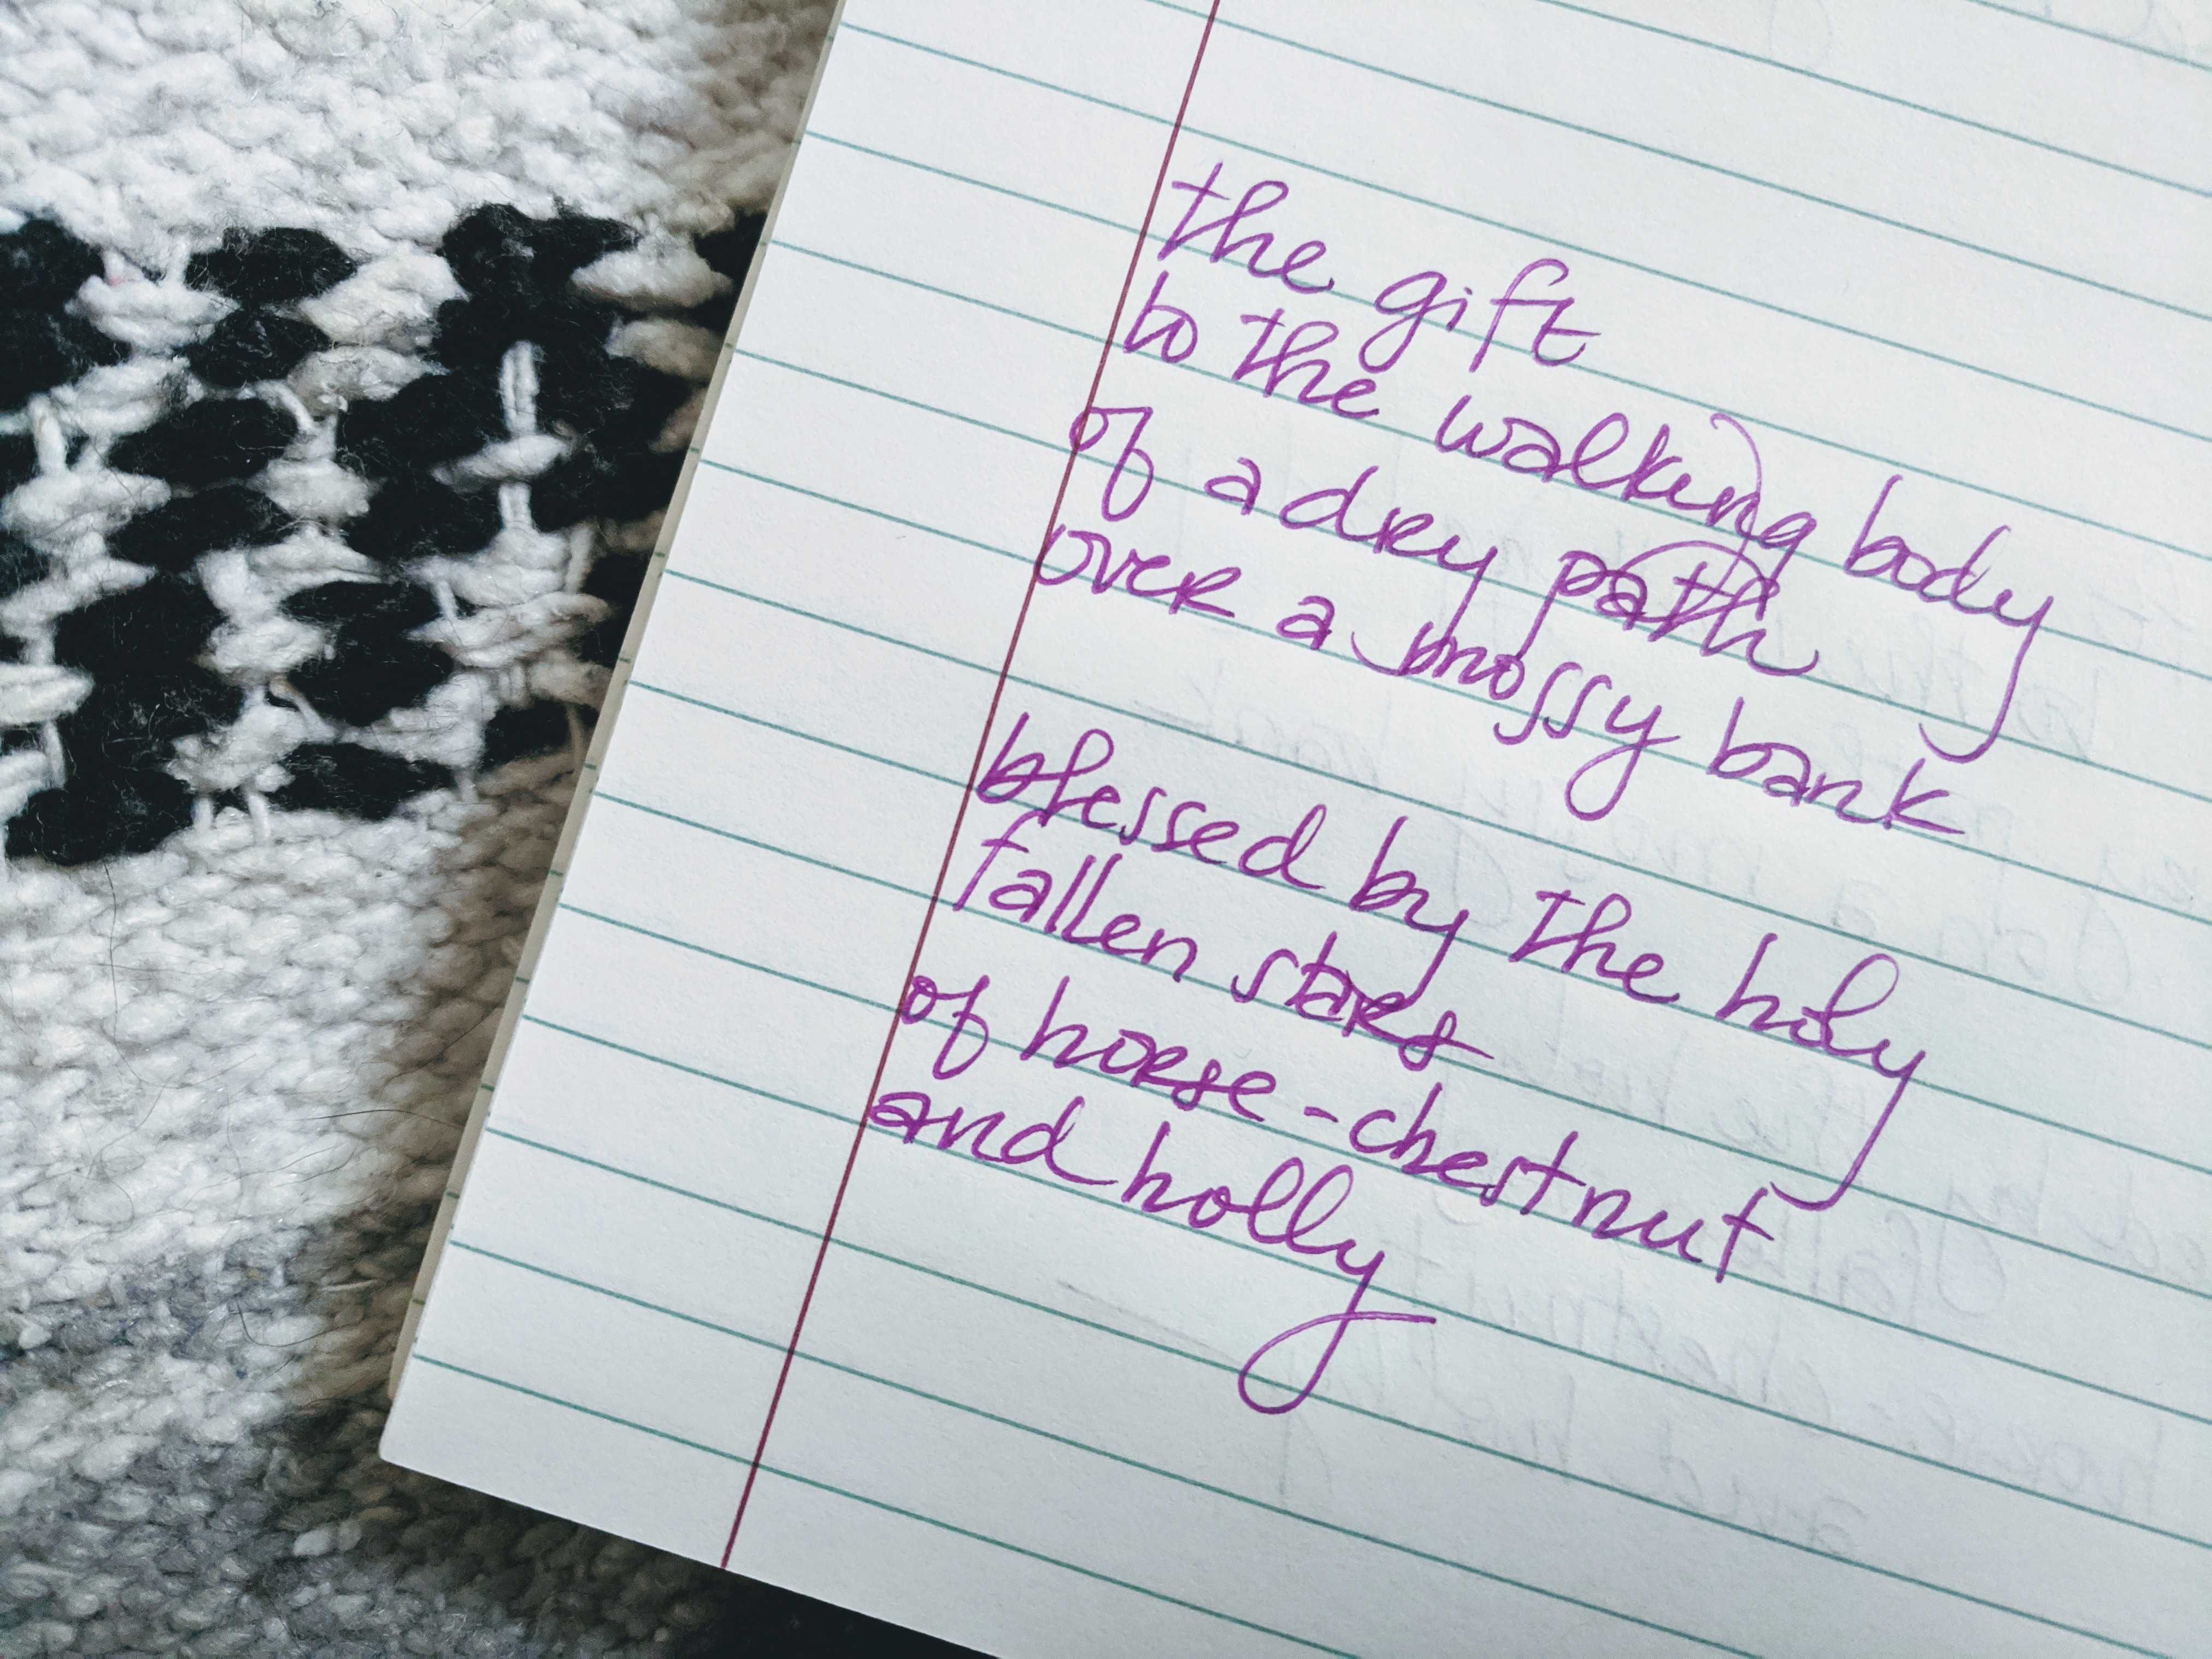 the gift
to the walking body
of a dry path
over a mossy bank
blessed by the holy
fallen stars
of horse-chestnut
and holly